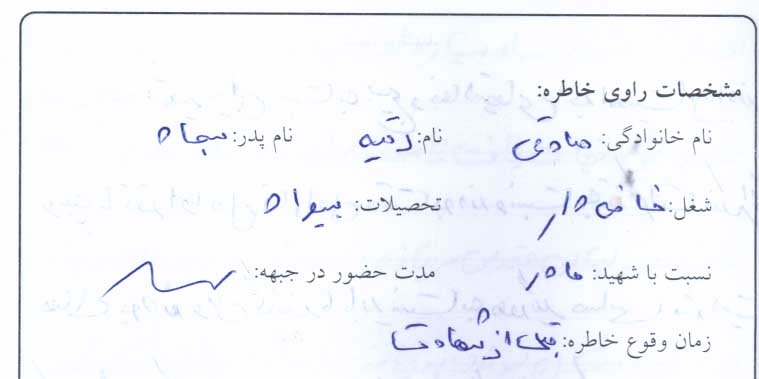 مشخصات راوی خاطره:
نام خانوادگی: صادقی نام: رقیه نام پدر: سجاد
شغل: خانه دار تحصیلات: بیسواد
نسبت با شهید: مادر مدت حضور در جبهه:
زمان وقوع خاطره: قبل از شهادت